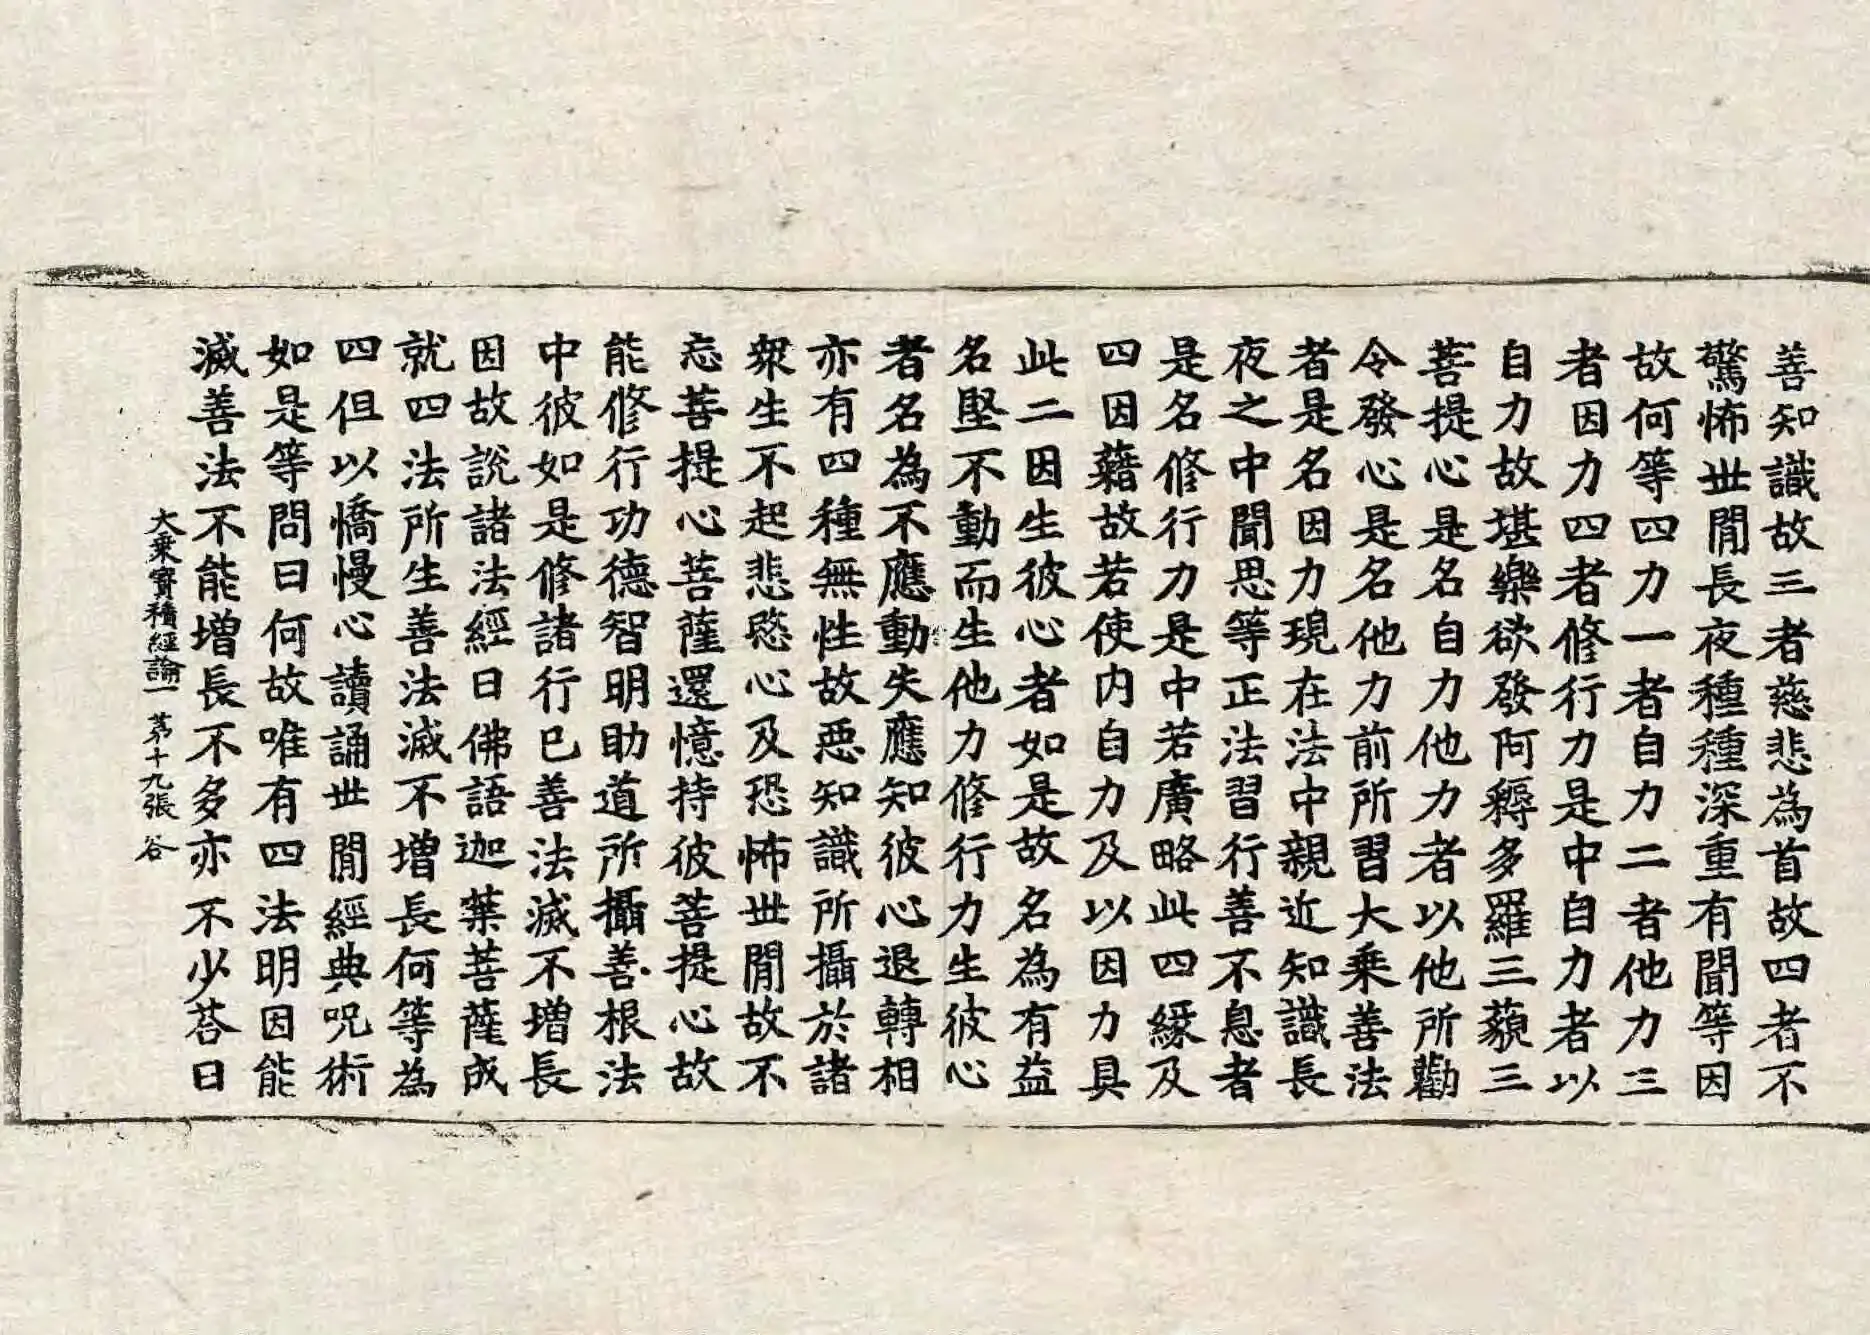 善知識故三者慈悲為首故四者不
驚怖世間長夜種種深重有聞等因
故何等四力一者自力二者他力三
者因力四者修行力是中自力者以
自力故堪樂欲發阿耨多羅三藐三
菩提心是名自力他力者以他所勸
令發心是名他力前所習大乘善法
者是名因力現在法中親近知識長
夜之中聞思等正法習行善不息者
是名修行力是中若廣略此四緣及
四因藉故若使内自力及以因力具
此二因生彼心者如是故名為有益
名堅不動而生他力修行力生彼心
者名為不應動失應知彼心退轉相
亦有四種無性故惡知識所攝於諸
衆生不起悲愍心及恐怖世間故不
忘菩提心菩薩還憶持彼菩提心故
能修行功德智明助道所攝善根法
中彼如是修諸行已善法滅不增長
因故說諸法經曰佛語迦葉菩薩成
就四法所生善法滅不增長何等為
四但以憍慢心讀誦世間經典呪術
如是等問曰何故唯有四法明因能
滅善法不能增長不多亦不少荅曰
大乘寳積經論一 第十九張 谷